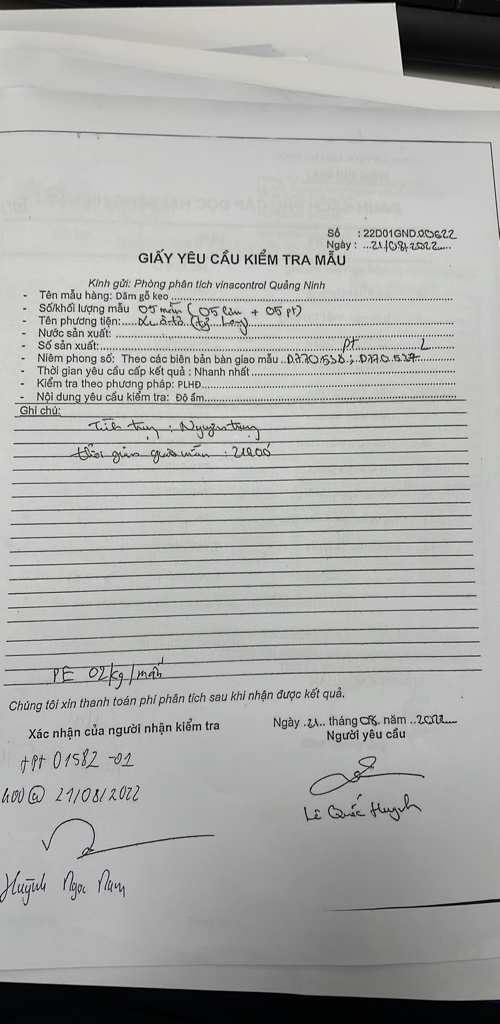 Số : 22D01GND.00622
Ngày : ...21/08/2022....
GIẤY YÊU CẦU KIỂM TRA MẪU
Kính gửi: Phòng phân tích vinacontrol Quảng Ninh
- Tên mẫu hàng: Dăm gỗ keo
- Số/khối lượng mẫu 05 mẫu (05 lưu + 05 pt)
- Tên phương tiện:.... Xe ô tô
- Nước sản xuất:
- Số sản xuất: pt L
- Niêm phong số: Theo các biên bản bàn giao mẫu ..D770.538; D770.527
- Thời gian yêu cầu cấp kết quả : Nhanh nhất
- Kiểm tra theo phương pháp: PLHĐ
- Nội dung yêu cầu kiểm tra: Độ ẩm
Ghi chú:
Tình trạng : Nguyên trạng
thời gian giao mẫu : 21h00
PE 02kg/mẫu
Chúng tôi xin thanh toán phí phân tích sau khi nhận được kết quả.
Xác nhận của người nhận kiểm tra
Ngày .21.. tháng 08. năm ..2022....
Người yêu cầu
+Pt 01582 -01
21/08/2022
Lê Quốc Huynh
Huỳnh Ngọc Nam